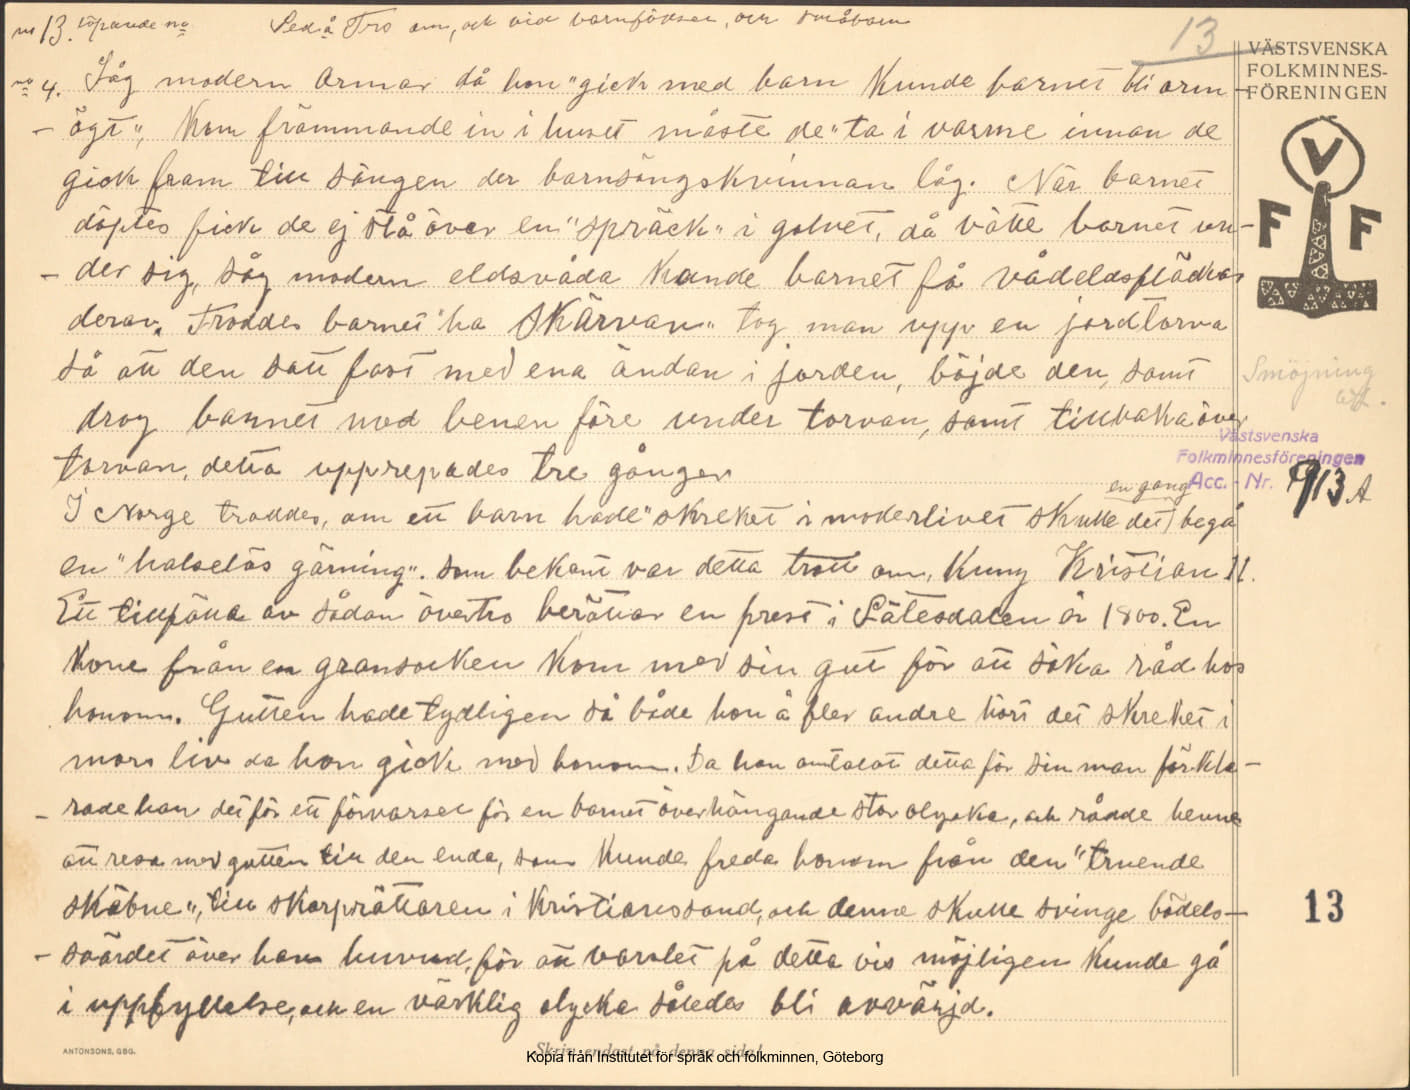 no 13. löpande no Sed å Tro om, och vid barnfödsel, och småbarn
13
VÄSTSVENSKA
FOLKMINNES-
FÖRENINGEN
V
F F
no 4. Såg modern ormar då hon "gick med barn kunde barnet bli orm-
- ögt", Kom främmande in i huset måste de "ta i varme innan de
gick fram till sängen der barnsängskvinnan låg. När barnet
döptes fick de ej stå över en "spräck" i golvet, då vätte barnet un-
- der sig, såg modern eldsvåda kunde barnet få vådeldsfläckar
derav. Troddes barnet "ha skärvan" tog man upp en jordtorva
så att den satt fast med ena ändan i jorden, böjde den, samt
drog barnet med benen före under torvan, samt tillbaka över
torvan, detta upprepades tre gånger
Smöjning
Västsvenska
Folkminnesföreningen
Acc. - Nr. 913 A
I Norge troddes, om ett barn hade "skreket i moderlivet skulle det en gang begå
en "halselös gärning". Som bekant var detta trott om, Kung Kristian II.
Ett tillfälle av sådan övertro berättar en prest i Sätesdalen år 1800. En
kone från en gransocken kom med sin gut för att söka råd hos
honom. Gutten hade tydligen så både hon å fler andre hört det skreket i
mors liv da hon gick med honom. Da hon omtalat detta för sin man förkla-
- rade han det för ett förvarsel för en barnet överhängande stor olycka, och rådde henne
att resa med gutten till den enda, som kunde freda honom från den "truende
skäbne", till skarprättaren i Kristianssand, och denne skulle svinge bödels-
- svärdet över hans huvud, för att varslet på detta vis möjligen kunde gå
i uppfyllelse, och en värklig olycka således bli avvärjd.
13
ANTONSONS, GBG.
Skriv endast på denna sida!
Kopia från Institutet för språk och folkminnen, Göteborg